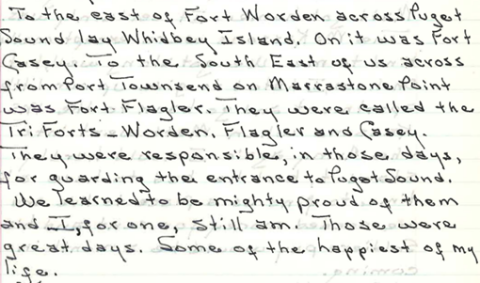 To the east of Fort Worden across Puget
Sound lay Whidbey Island. On it was Fort
Casey. To the South East of us across
from Port Townsend on Marrastone Point
was Fort Flagler. They were called the
Tri Forts - Worden, Flagler and Casey.
They were responsible, in those days,
for guarding the entrance to Puget Sound.
We learned to be mighty proud of them
and I, for one, still am. Those were
great days. Some of the happiest of my
life.